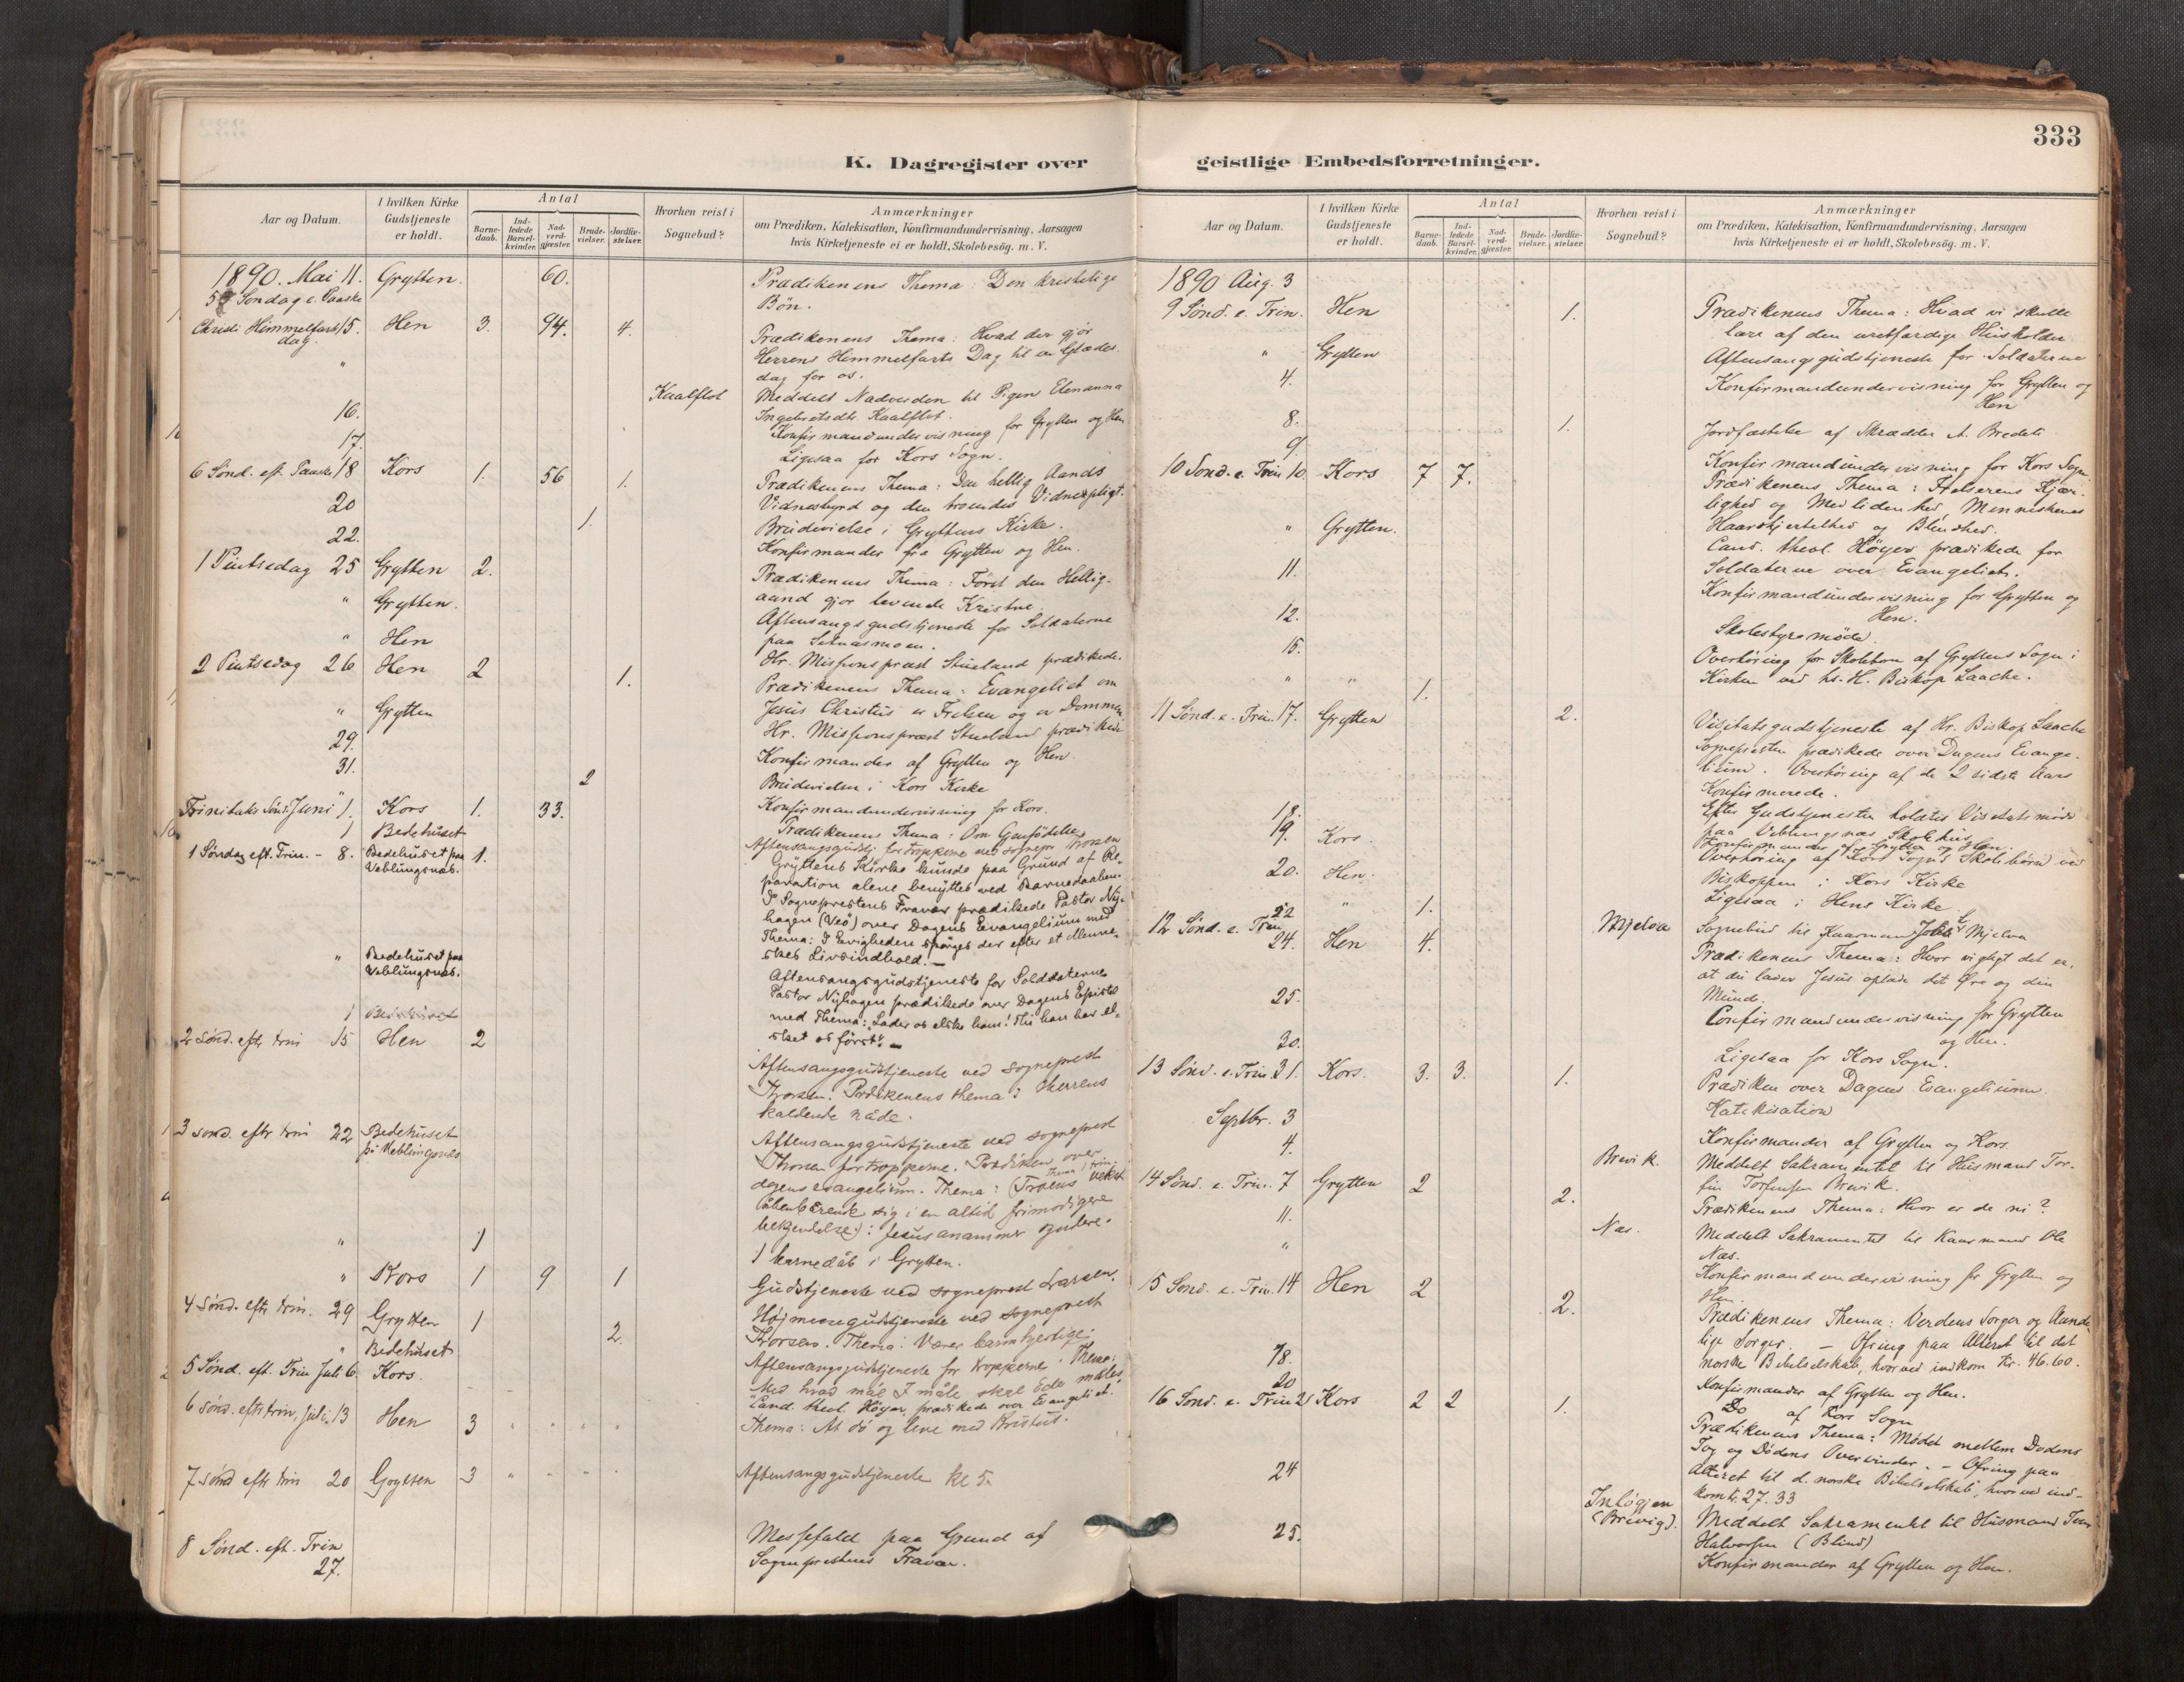 333
K. Dagregister over
geistlige Embedsforretninger.
Aar og Datum.
I hvilken Kirke
Gudstjeneste
er holdt.
Antal
Barne-
daab.
Ind-
ledede
Barsel-
kvinder.
Nad-
verd-
gjæster.
Brude-
vielser.
Jordfæ-
stelser.
Hvorhen reist i
Sognebud?
Anmærkninger
om Prædiken, Katekisation, Konfirmandundervisning, Aarsagen
hvis Kirketjeneste ei er holdt, Skolebesøg. m. V.
1890. Mai 11. Grytten. 60. Prædikenens Thema: Den kristelige
5 Søndag e. Paaske Bøn.
Christi Himmelfarts 15. Hen 3. 94. 4. Prædikenens Thema: Hvad der gjør
dag. Herrens Himmelfarts Dag til en Glædes
" dag for os.
Kaalflot Meddelt Nadverden til Pigen Elenanna
16. Ingebretsdtr. Kaalflot.
17. Konfirmandundervisning for Grytten og Hen
Ligesaa for Kors Sogn.
6 Sønd. eft. Paaske 18 Kors 1. 56 1. Prædikenens Thema: Den hellig Aands
20 1. Vidnesbyrd og den troendes Vidnepligt.
22. Brudevielse i Gryttens Kirke.
Konfirmander fra Grytten og Hen.
1 Pintsedag 25 Grytten 2. Prædikenens Thema: Først den Hellig-
" Grytten. aand gjør levende Kristne
" Hen Aftensangsgudstjeneste for Soldaterne
paa Setnasmoen.
2 Pintsedag 26 Hen 2 1. Hr. Missionsprest Stueland prædikede.
Prædikenens Thema: Evangeliet om
" Grytten Jesus Christus er Frelsen og er Dommen
29. Hr. Missionsprest Stueland prædikede
31. 2 Konfirmander af Grytten og Hen
Brudevielser i Kors Kirke
Trinitatis Sønd. Juni 1. Kors 1. 33. Konfirmandundervisning for Kors.
1 Bedehuset Prædikenens Thema: Om Genfødelse
1 Søndag eft. Trin. - 8. Bedehuset paa 1. Aftensangsgudstj. for tropperne ved sognepr Thorsen
Veblungsnæs. Gryttens Kirke kunde paa Grund af Re-
paration alene benyttes ved Barnedaaben.
I Sogneprestens Fravær prædikede Pastor Ny-
hagen (Veø) over Dagens Evangelium med
Thema: I Evigheden spørges der efter et Menne-
skes Livsindhold. -
" Bedehuset paa Aftensangsgudstjeneste for Soldaterne
Veblungsnæs. Pastor Nyhagen prædikede over Dagens Epistel
1 Bedehuset med Thema: „Lader os elske ham! Thi han har el-
2 Sønd. eftr trin 15 Hen 2 sket os først." -
Aftensangsgudstjeneste ved sogneprest
Thorsen. Prædikenens thema: Herrens
kaldende nåde.
3 sønd. eftr trin 22 Bedehuset Aftensangsgudstjeneste ved sogneprest
på Veblungsnæs Thorsen for tropperne. Prædiken over
dagens evangelium. Thema: (Troens vekst
åbenbarende sig i en altid frimodigere
bekjendelse): Jesus anammer syndere.
" 1 1 barnedåb i Grytten.
" Kors 1 9 1 Gudstjeneste ved sogneprest Larsen.
4 sønd. eftr trin. 29 Grytten 1 2. Højmessegudstjeneste ved sogneprest
" Bedehuset Thorsen. Thema: Værer barmhjertige.
5 Sønd. eft. Trin Juli 6. Kors. Aftensangsgudstjeneste for tropperne. Thema:
Med hvad mål I måle skal Eder måles
6 sønd. eftr trin, juli, 13 Hen 3 Cand. theol. Høyer prædikede over Evangeliet.
Thema: At dø og leve med Kristus.
7 sønd eftr trin 20 Grytten 3 Aftensangsgudstjeneste kl 5.
8 Sønd. eft. Trin Messefald paa Grund af
27. Sogneprestens Fravær.
Aar og Datum.
I hvilken Kirke
Gudstjeneste
er holdt.
Antal
Barne-
daab.
Ind-
ledede
Barsel-
kvinder.
Nad-
verd-
gjæster.
Brude-
vielser.
Jordfæ-
stelser.
Hvorhen reist i
Sognebud?
Anmærkninger
om Prædiken, Katekisation, Konfirmandundervisning, Aarsagen
hvis Kirketjeneste ei er holdt, Skolebesøg. m. V.
1890 Aug. 3
9 Sønd. e. Trin. Hen 1. Prædikenens Thema: Hvad vi skulle
lære af den uretfærdige Husholder
" Grytten Aftensangsgudstjeneste for Soldaterne
4. Konfirmandundervisning for Grytten og
Hen
8. 1. Jordfæstelse af Skrædder A. Bredeli
9. Konfirmandundervisning for Kors Sogn
10 Sønd. e. Trin 10. Kors 7 7. Prædikenens Thema: Frelserens Kjær-
lighed og Medlidenhed, Menneskenes
Haardhjertethed og Blindhed.
" Grytten. Cand. theol. Høyer prædikede for
Soldaterne over Evangeliet.
11. Konfirmandundervisning for Grytten og
Hen.
12. Skolestyremøde.
15. Overhøring for Skolebørn af Gryttens Sogn i
" " 1. Kirken ved hs. H. Biskop Laache.
11 Sønd. e. Trin. 17. Grytten 2. Visitatsgudstjeneste af Hr. Biskop Laache
Sognepresten prædikede over Dagens Evange-
lium. Overhøring af de 2 sidste Aars
Konfirmerede.
Efter Gudstjenesten holdtes Visitatsmøde
paa Veblungsnæs Skolehus
18. Konfirmander af Grytten og Hen.
19. Kors. Overhøring af Kors Sogns Skolebørn ved
Biskoppen i Kors Kirke
20. Hen. Ligesaa i Hens Kirke
22 " 1. Mjelva Sognebud til Kaarmand Mjelva
12 Sønd. e. Trin
24. Hen 4. Prædikenens Thema: Hvor vigtigt det er,
at du lader Jesus oplade dit Øre og din
Mund.
25. Confirmandundervisning for Grytten
og Hen.
30. Ligesaa for Kors Sogn.
13 Sønd. e. Trin. 31. Kors. 3. 3. 1. Prædiken over Dagens Evangelium.
Katekisation
Septbr. 3 Konfirmander af Grytten og Kors.
4. Brevik. Meddelt Sakramentet til Husmand Tor-
fin Torfinsen Brevik.
14 Sønd. e. Trin. 7 Grytten 2 2. Prædikenens Thema: Hvor er de ni?
11. Næs. Meddelt Sakramentet til Kaarmand Ole
Næs.
" Konfirmandundervisning for Grytten og
Hen.
15 Sønd. e. Trin. 14 Hen 2 2. Prædikenens Thema: Verdens Sorger og Aande-
lige Sorger. - Ofring paa Alteret til det
norske Bibelselskab, hvorved indkom Kr. 46.60.
18. Konfirmander af Grytten og Hen.
20 Do af Kors Sogn
16 Sønd. e. Trin 21 Kors 2 2 1. Prædikenens Thema: Mødet mellem Dødens
Tog og Dødens Overvinder. - Ofring paa
Alteret til d. norske Bibelselskab, hvorved ind-
kom kr. 27.33
24 Inløgjen Meddelt Sakramentet til Husmand
(Brevig). Halvorsen (Blind)
25. Konfirmander af Grytten og Hen.